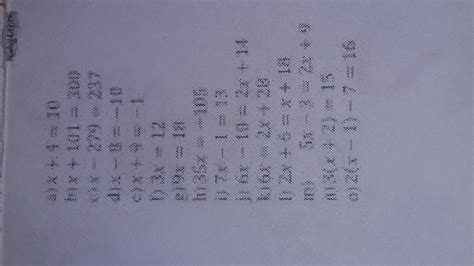 a) x + 4 = 10
b) x + 101 = 300
c) x − 279 = 237
d) x − 9 = −10
e) x + 9 = −1
f) 3x = 12
g) 9x = 18
h) 35x = −105
i) 7x − 1 = 13
j) 6x − 10 = 2x + 14
k) 6x = 2x + 28
l) 2x + 6 = x + 18
m) 5x − 3 = 2x + 9
n) 3(x + 2) = 15
o) 2(x − 1) − 7 = 16